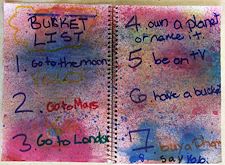 BUCKET
LIST
1. Go to the moon
2. Go to Mars
3 Go to London
4. own a planet
or name it.
5. be on TV
6. have a bucket
7. buy a
say